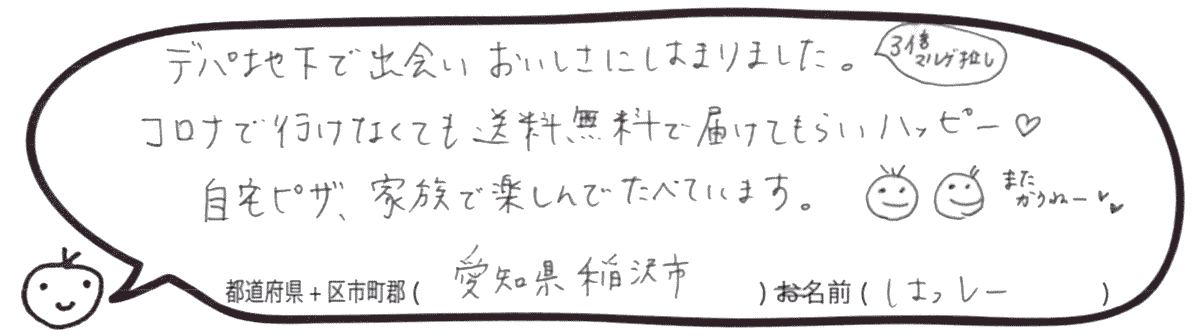 デパ地下で出会いおいしさにはまりました。
3倍
マルゲ推し
コロナで行けなくても送料無料で届けてもらいハッピー♡
自宅ピザ、家族で楽しんでたべています。
また
かうねー♡♡
都道府県+区市町郡(愛知県稲沢市)お名前(はっしー)